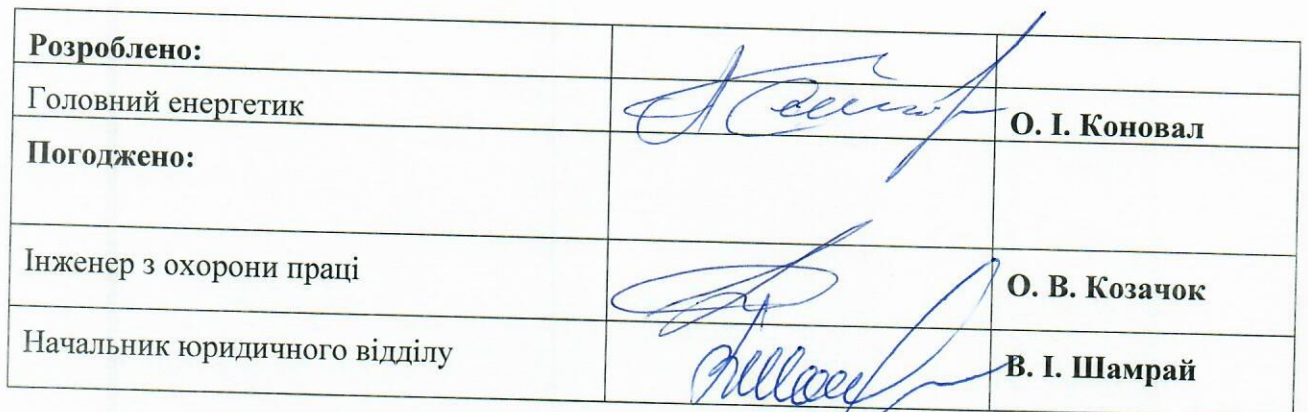 Розроблено:
Головний енергетик О. І. Коновал
Погоджено:
Інженер з охорони праці О. В. Козачок
Начальник юридичного відділу В. І. Шамрай